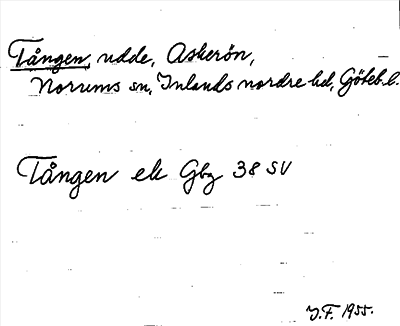 Tången, udde, Askerön,
Norums sn, Inlands nordre hd, Göteb. l.
Tången ek Gbg 38 SV
J.F. 1955.